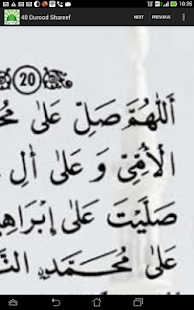 10:35
40 Durood Shareef NEXT PREVIOUS
20
اَللّٰهُمَّ صَلِّ عَلٰى
الْاُمِّىِّ وَ عَلٰى اٰلِ
صَلَّيْتَ عَلٰى اِبْرَاهِي
عَلٰى مُحَمَّدِ